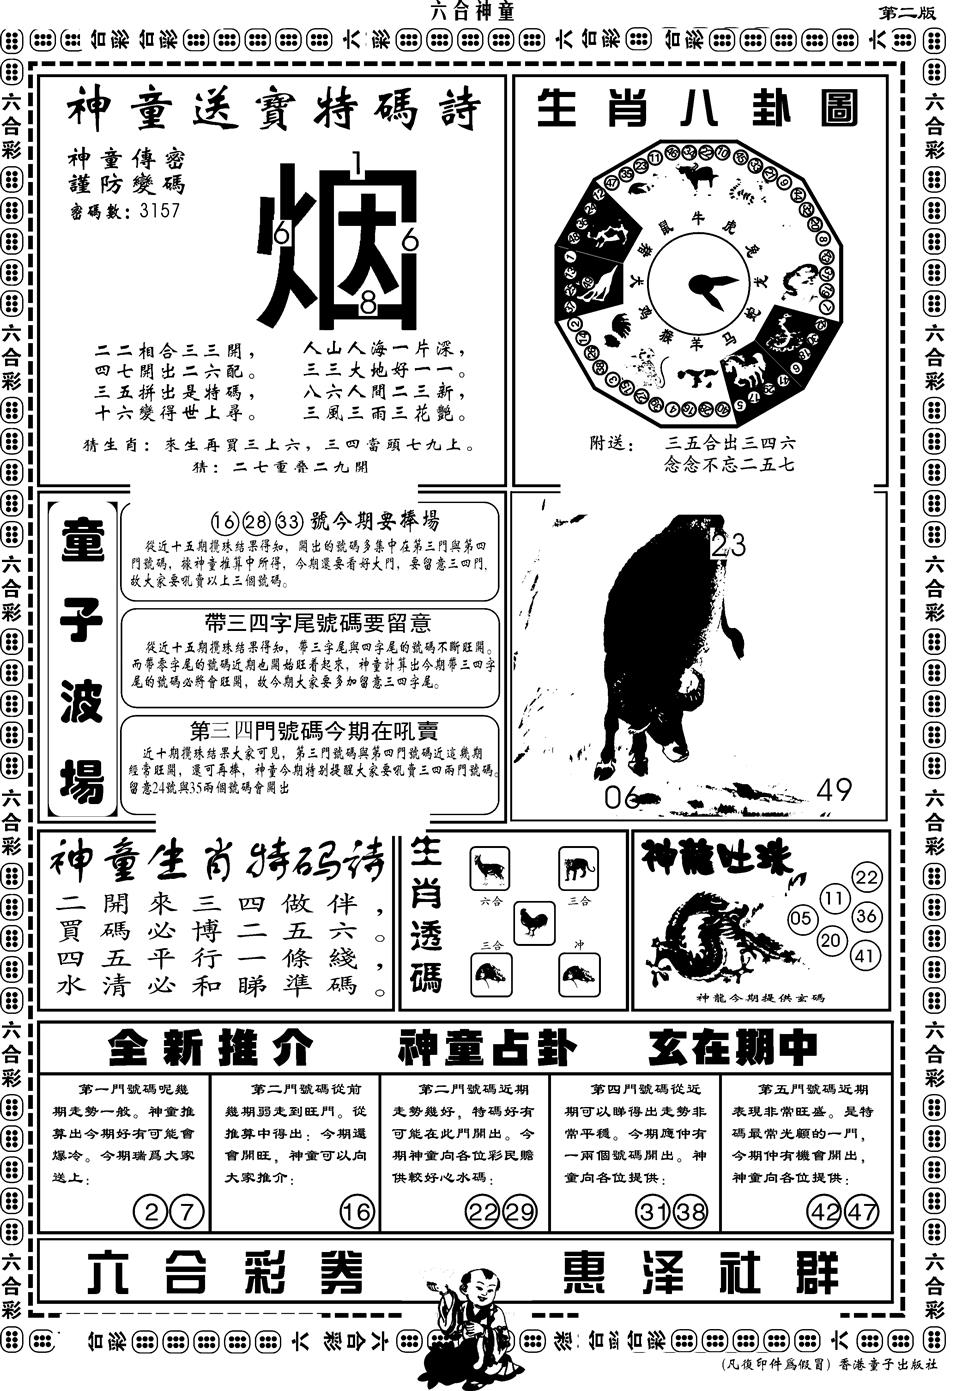 六合神童
第二版
神童送寶特碼詩
神童傳密
謹防變碼
密碼數：3157
烟
1
6
6
8
二二相合三三開，
四七開出二六配。
三五拼出是特碼，
十六變得世上尋。
人山人海一片深，
三三大地好一一。
八六人間二三新，
三風三雨三花艷。
猜生肖：來生再買三上六，三四當頭七九上。
猜：二七重叠二九開
生肖八卦圖
鼠牛虎兔龙蛇马羊猴鸡犬猪
附送：
三五合出三四六
念念不忘二五七
童子波場
16 28 33 號今期要捧場
從近十五期攪珠结果得知，開出的號碼多集中在第三門與第四
門號碼，據神童推算中所得，今期還要看好大門，要留意三四門，
故大家要吼賣以上三個號碼。
帶三四字尾號碼要留意
從近十五期攪珠结果得知，帶三字尾與四字尾的號碼不斷旺開。
而帶零字尾的號碼近期也開始旺着起來，神童計算出今期帶三四字
尾的號碼必將會旺開，故今期大家要多加留意三四字尾。
第三四門號碼今期在吼賣
近十期攪珠结果大家可見，第三門號碼與第四門號碼近這幾期
經常旺開，還可再捧，神童今期特别提醒大家要吼賣三四兩門號碼。
留意24號與35兩個號碼會開出
23
06
49
神童生肖特码詩
二開來三四做伴，
買碼必博二五六。
四五平行一條綫，
水清必和睇準碼。
生肖透碼
六合
三合
三合
冲
神龍吐珠
22
11
05
36
20
41
神龍今期提供玄碼
全新推介
神童占卦
玄在期中
第一門號碼呢幾
期走勢一般。神童推
算出今期好有可能會
爆冷。今期瑞爲大家
送上：
2 7
第二門號碼從前
幾期弱走到旺門。從
推算中得出：今期還
會開旺，神童可以向
大家推介：
16
第二門號碼近期
走勢幾好，特碼好有
可能在此門開出。今
期神童向各位彩民賒
供較好心水碼：
22 29
第四門號碼從近
期可以睇得出走勢非
常平穩。今期應仲有
一兩個號碼開出。神
童向各位提供：
31 38
第五門號碼近期
表現非常旺盛。是特
碼最常光顧的一門，
今期仲有機會開出，
神童向各位提供：
42 47
六合彩券
惠泽社群
(凡復印件爲假冒) 香港童子出版社